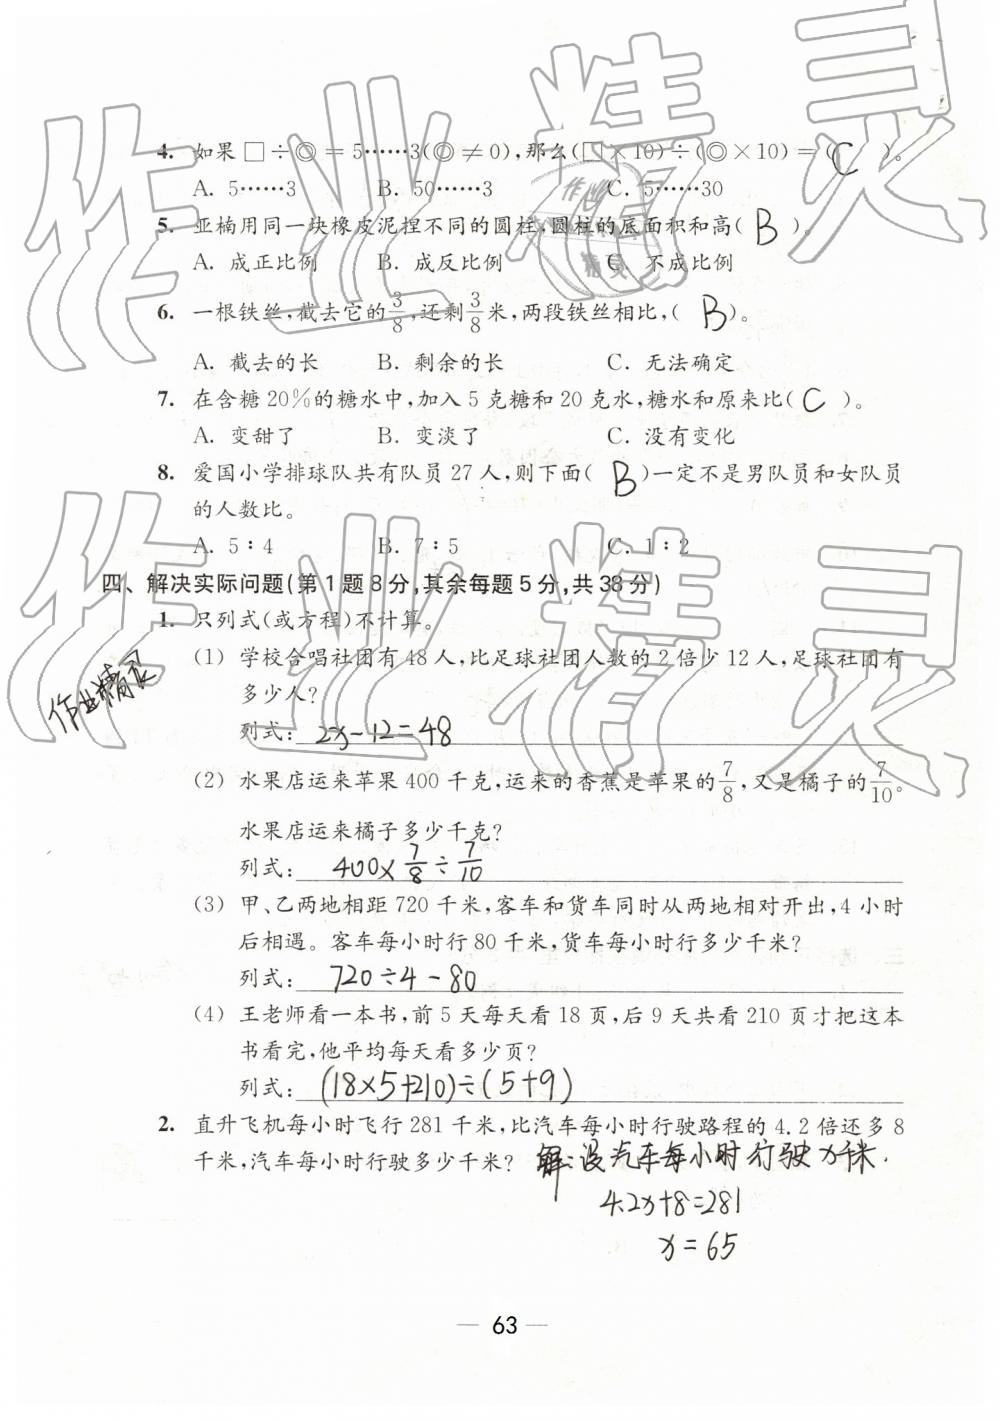 4. 如果□÷◎=5……3(◎≠0),那么(□×10)÷(◎×10)=( C )。
A. 5……3 B. 50……3 C. 5……30
5. 亚楠用同一块橡皮泥捏不同的圆柱,圆柱的底面积和高( B )。
A. 成正比例 B. 成反比例 C. 不成比例
6. 一根铁丝,截去它的3/8,还剩3/8米,两段铁丝相比,( B )。
A. 截去的长 B. 剩余的长 C. 无法确定
7. 在含糖20%的糖水中,加入5克糖和20克水,糖水和原来比( C )。
A. 变甜了 B. 变淡了 C. 没有变化
8. 爱国小学排球队共有队员27人,则下面( B )一定不是男队员和女队员
的人数比。
A. 5∶4 B. 7∶5 C. 1∶2
四、解决实际问题(第1题8分,其余每题5分,共38分)
1. 只列式(或方程)不计算。
(1) 学校合唱社团有48人,比足球社团人数的2倍少12人,足球社团有
多少人?
作业精灵
列式: 2x-12=48
(2) 水果店运来苹果400千克,运来的香蕉是苹果的7/8,又是橘子的7/10。
水果店运来橘子多少千克?
列式: 400×7/8÷7/10
(3) 甲、乙两地相距720千米,客车和货车同时从两地相对开出,4小时
后相遇。客车每小时行80千米,货车每小时行多少千米?
列式: 720÷4-80
(4) 王老师看一本书,前5天每天看18页,后9天共看210页才把这本
书看完,他平均每天看多少页?
列式: (18×5+210)÷(5+9)
2. 直升飞机每小时飞行281千米,比汽车每小时行驶路程的4.2倍还多8
千米,汽车每小时行驶多少千米? 解:设汽车每小时行驶x千米.
4.2x+8=281
x=65
— 63 —
作业精灵
作业精灵
作业精灵